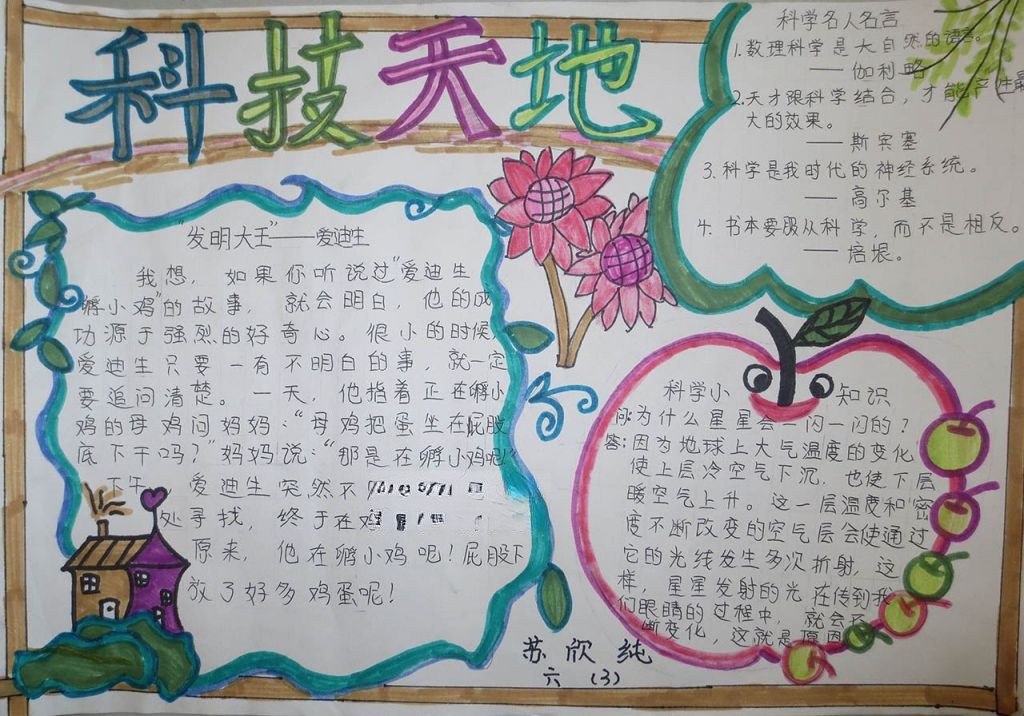 科技天地
"发明大王"——爱迪生
我想，如果你听说过"爱迪生
孵小鸡"的故事，就会明白，他的成
功源于强烈的好奇心。很小的时候，
爱迪生只要一有不明白的事，就一定
要追问清楚。一天，他指着正在孵小
鸡的母鸡问妈妈："母鸡把蛋坐在屁股
底下干吗？"妈妈说："那是在孵小鸡呢！"
下午，爱迪生突然不
处寻找，终于在
原来，他在孵小鸡呢！屁股下
放了好多鸡蛋呢！
科学名人名言
1.数理科学是大自然的语言。
——伽利略
2.天才跟科学结合，才能产生最
大的效果。
——斯宾塞
3.科学是我时代的神经系统。
——高尔基
4.书本要服从科学，而不是相反。
——培根。
科学小知识
问:为什么星星会一闪一闪的？
答:因为地球上大气温度的变化
使上层冷空气下沉，也使下层
暖空气上升。这一层温度和密
度不断改变的空气层会使通过
它的光线发生多次折射，这
样，星星发射的光在传到我
们眼睛的过程中，就会不
断变化，这就是原因
苏欣纯
六（3）